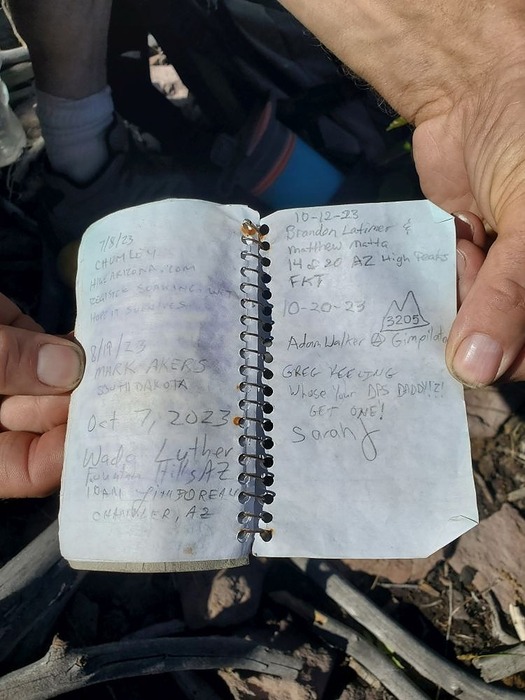 7/8/23
CHUMLEY
HIKEARIZONA.COM
8/19/23
MARK AKERS
SOUTH DAKOTA
Oct 7, 2023
Wade Luther
Hills AZ
TIM BOREAU
CHANDLER, AZ
10-12-23
Brandon Latimer &
Matthew Matta
14 of 20 AZ High Peaks
FKT
10-20-23
3205
Adam Walker Gimpilator
GREG
Whose Your DPS DADDY!Z!
GET ONE!
Sarah J